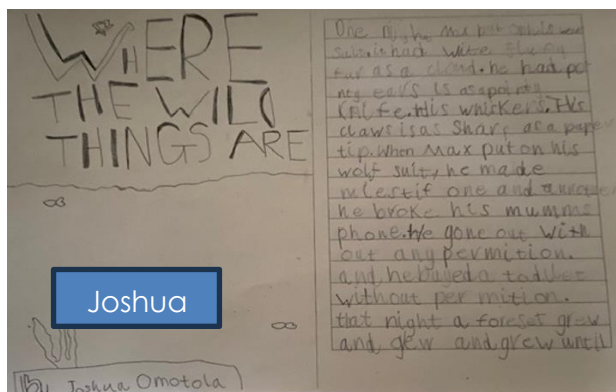 WHERE
THE WILD
THINGS ARE
Joshua
By Joshua Omotola
One night Max put on his
suit. is had wite
fur as a cloud. he had poi
nty ears is as apointy
knife. his whickers. His
claws is as sharp as a paper
tip. When Max put on his
wolf suit, he made
one and
he broke his mumms
phone. He gone out with
out any permition.
and he buyed a
without per mition.
that night a foreset grew
and, gew and grew until